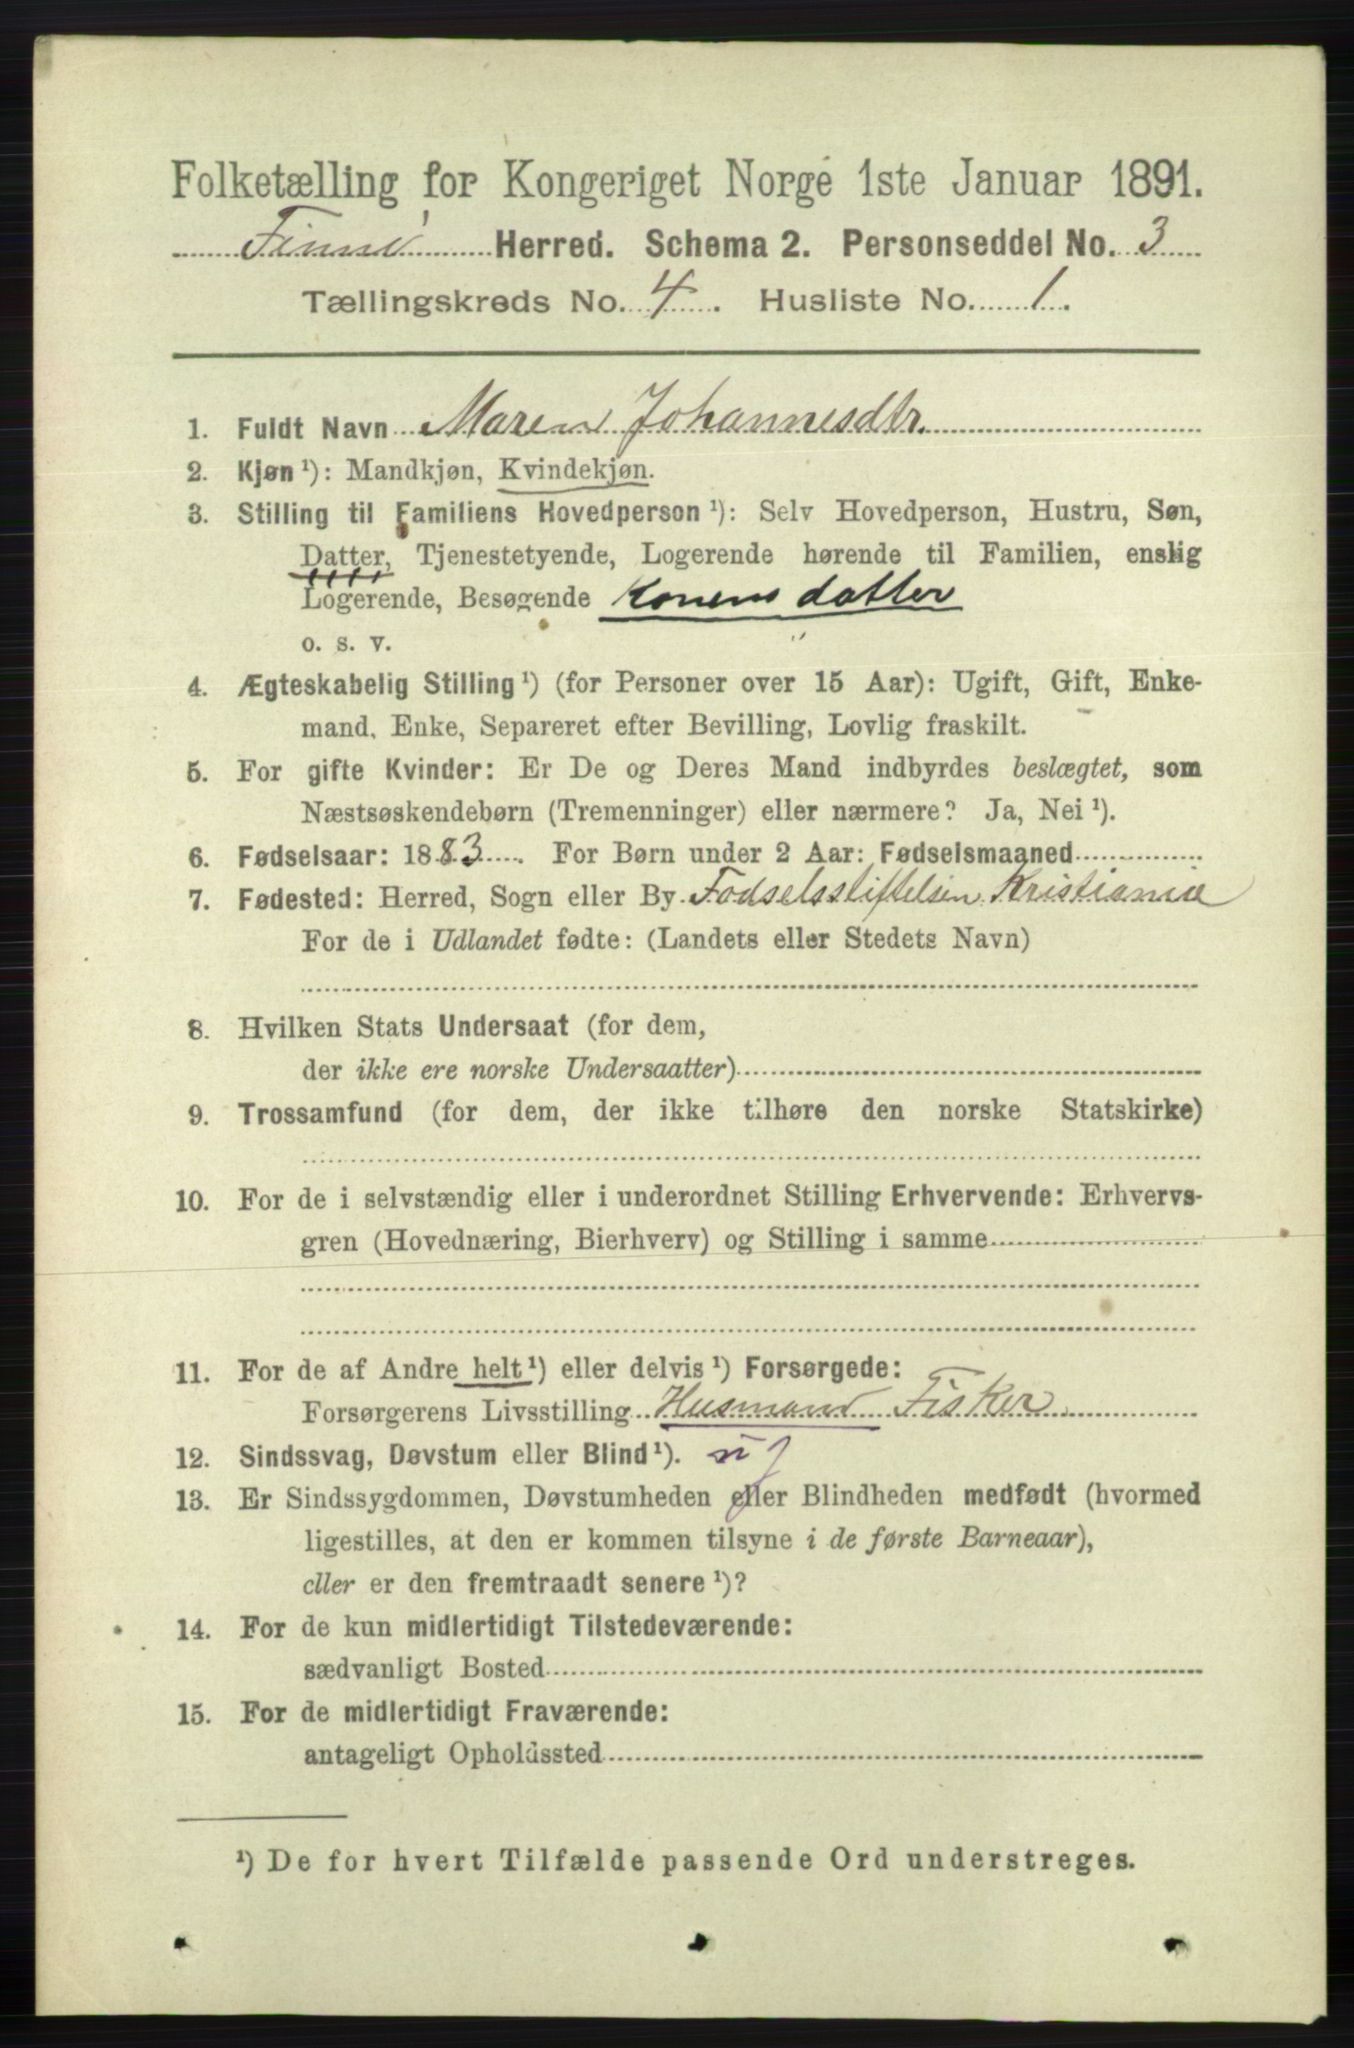 Folketælling for Kongeriget Norge 1ste Januar 1891.
Finnø Herred. Schema 2. Personseddel No. 3
Tællingskreds No. 4. Husliste No. 1.
1. Fuldt Navn Maren Johannesdtr.
2. Kjøn ¹): Mandkjøn, Kvindekjøn.
3. Stilling til Familiens Hovedperson ¹): Selv Hovedperson, Hustru, Søn,
Datter, Tjenestetyende, Logerende hørende til Familien, enslig
Logerende, Besøgende Konens datter
o. s. v.
4. Ægteskabelig Stilling ¹) (for Personer over 15 Aar): Ugift, Gift, Enke-
mand, Enke, Separeret efter Bevilling, Lovlig fraskilt.
5. For gifte Kvinder: Er De og Deres Mand indbyrdes beslægtet, som
Næstsøskendebørn (Tremenninger) eller nærmere? Ja, Nei ¹).
6. Fødselsaar: 1883. For Børn under 2 Aar: Fødselsmaaned
7. Fødested: Herred, Sogn eller By Fødselsstiftelsen Kristiania
For de i Udlandet fødte: (Landets eller Stedets Navn)
8. Hvilken Stats Undersaat (for dem,
der ikke ere norske Undersaatter)
9. Trossamfund (for dem, der ikke tilhøre den norske Statskirke)
10. For de i selvstændig eller i underordnet Stilling Erhvervende: Erhvervs-
gren (Hovednæring, Bierhverv) og Stilling i samme
11. For de af Andre helt ¹) eller delvis ¹) Forsørgede:
Forsørgerens Livsstilling Husmand Fisker
12. Sindssvag, Døvstum eller Blind ¹).
13. Er Sindssygdommen, Døvstumheden eller Blindheden medfødt (hvormed
ligestilles, at den er kommen tilsyne i de første Barneaar),
eller er den fremtraadt senere ¹)?
14. For de kun midlertidigt Tilstedeværende:
sædvanligt Bosted
15. For de midlertidigt Fraværende:
antageligt Opholdssted
¹) De for hvert Tilfælde passende Ord understreges.